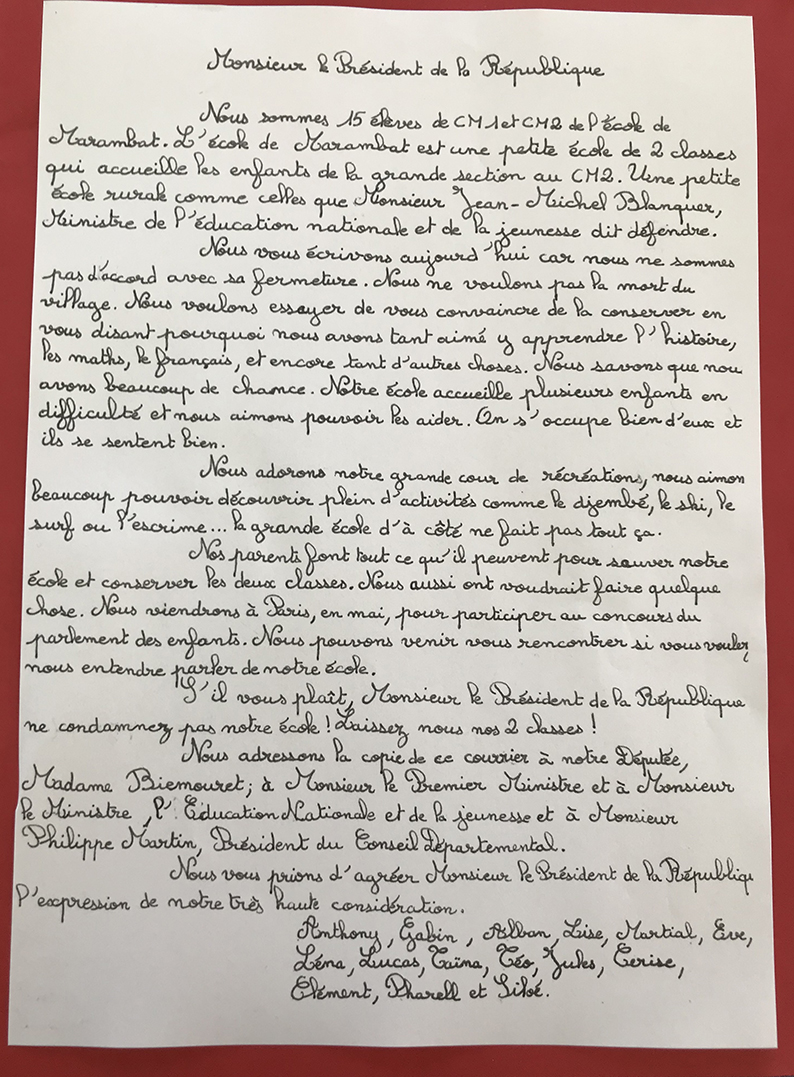 Monsieur le Président de la République
Nous sommes 15 élèves de CM1 et CM2 de l'école de
Marambat. L'école de Marambat est une petite école de 2 classes
qui accueille les enfants de la grande section au CM2. Une petite
école rurale comme celles que Monsieur Jean-Michel Blanquer,
Ministre de l'éducation nationale et de la jeunesse dit défendre.
Nous vous écrivons aujourd'hui car nous ne sommes
pas d'accord avec sa fermeture. Nous ne voulons pas la mort du
village. Nous voulons essayer de vous convaincre de la conserver en
vous disant pourquoi nous avons tant aimé y apprendre l'histoire,
les maths, le français, et encore tant d'autres choses. Nous savons que nou
avons beaucoup de chance. Notre école accueille plusieurs enfants en
difficulté et nous aimons pouvoir les aider. On s'occupe bien d'eux et
ils se sentent bien.
Nous adorons notre grande cour de récréations, nous aimon
beaucoup pouvoir découvrir plein d'activités comme le djembé, le ski, le
surf ou l'escrime... la grande école d'à côté ne fait pas tout ça.
Nos parents font tout ce qu'il peuvent pour sauver notre
école et conserver les deux classes. Nous aussi ont voudrait faire quelque
chose. Nous viendrons à Paris, en mai, pour participer au concours du
parlement des enfants. Nous pouvons venir vous rencontrer si vous voulez
nous entendre parler de notre école.
S'il vous plaît, Monsieur le Président de la République
ne condamnez pas notre école ! Laissez nous nos 2 classes !
Nous adressons la copie de ce courrier à notre Députée,
Madame Biemouret; à Monsieur le Premier Ministre et à Monsieur
le Ministre, l'Education Nationale et de la jeunesse et à Monsieur
Philippe Martin, Président du Conseil Départemental.
Nous vous prions d'agréer Monsieur le Président de la Républiqu
l'expression de notre très haute considération.
Anthony, Gabin, Alban, Lise, Martial, Eve,
Léna, Lucas, Taïna, Téo, Jules, Cerise,
Clément, Pharell et Siloé.